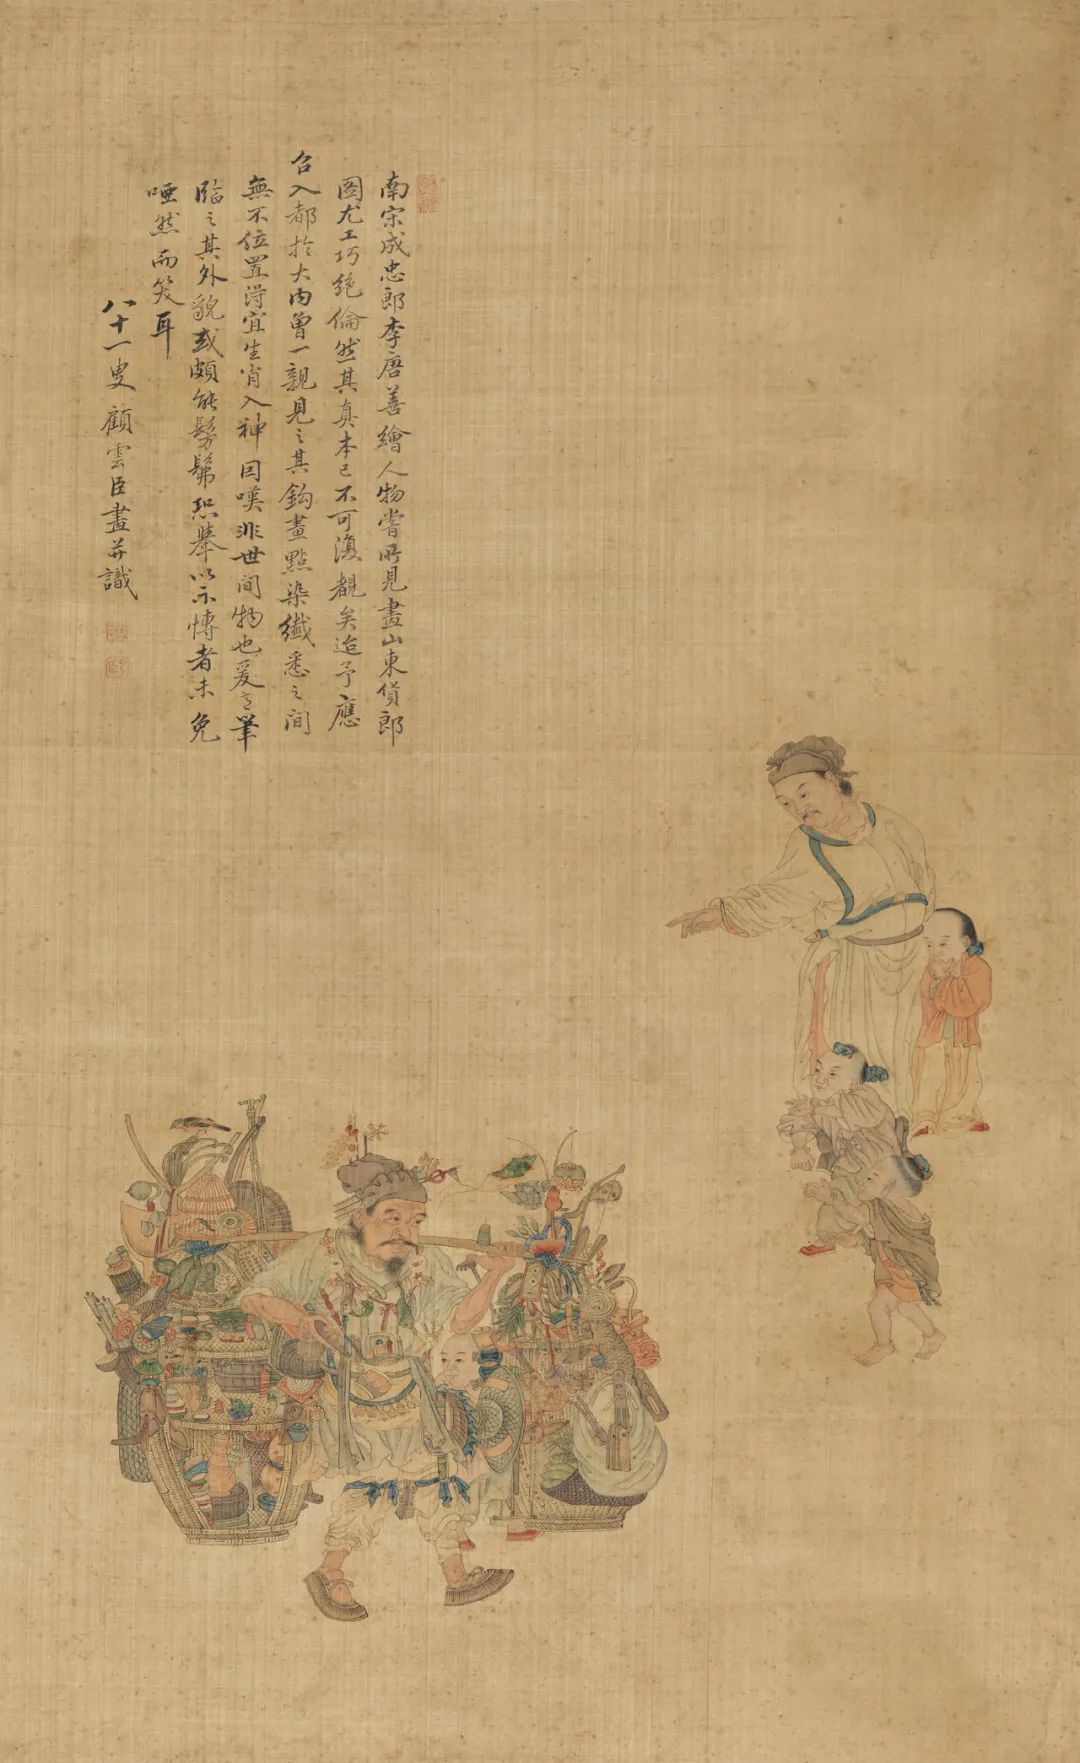 南宋成忠郎李唐善繪人物嘗所見畫山東貨郎
圖尤工巧絕倫然其真本已不可復覩矣迨予應
召入都於大內曾一親見之其鈎畫點染纖悉之間
無不位置得宜生肖入神因嘆非世間物也爰命筆
臨之其外貌或頗能髣髴然舉以示博者未免
啞然而笑耳
八十一叟顧雲臣畫并識